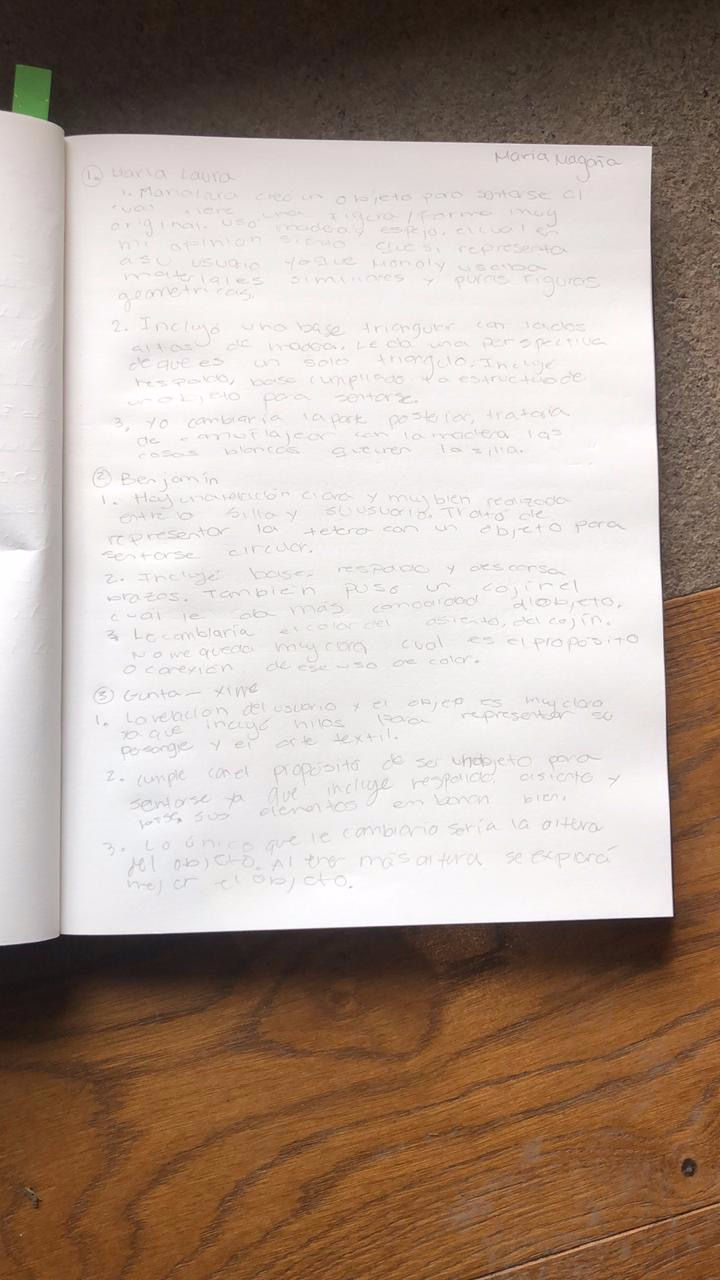 María Magaña
1. María Laura
1. Maria Lara creó un objeto para sentarse el
cual tiene una figura/forma muy
original. Usó madera y espejo. el cual en
mi opinion siento que si representa
a su usuario ya que Moholy usaba
materiales similares y puras figuras
geometricas.
2. Incluyó una base triangular con lados
altos de madera. Le da una perspectiva
de que es un solo triangulo. Incluyé
respaldo, base cumpliado la estructura de
un objeto para sentarse.
3. Yo cambiaría la parte posterior, trataría
de camuflajear con la madera las
cosas blancas que unen la silla.
2 Benjamín
1. Hay una relación clara y muy bien realizada
entre la silla y su usuario. Trató de
representar la tetera con un objeto para
sentarse circular.
2. Incluyé base, respaldo y descansa
brazos. También puso un cojin el
cual le da más comodidad al objeto.
3. Le cambiaría el color del asiento, del cojín.
No me queda muy clara cual es el propósito
o conexión de ese uso de color.
3 Gunta - Xime
1. La relación del usuario y el objeto es muy clara
ya que incluyó hilos para representar su
personaje y el arte textil.
2. cumple con el propósito de ser un objeto para
sentarse ya que incluye respaldo, asiento y
sus elementos embonan bien.
3. Lo único que le cambiaria sería la altura
del objecto. Al tener más altura se
mejor el objecto.